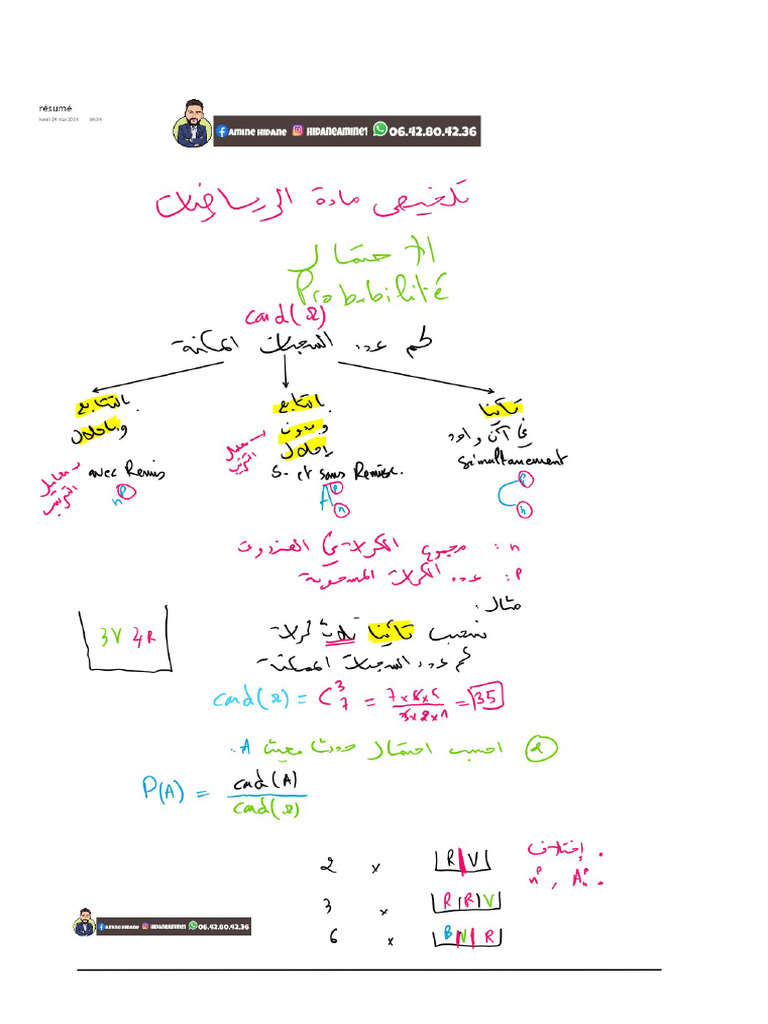 résumé
lundi 29 mai 2023 09:29
AMINE HIDANE HIDANEAMINE1 06.42.80.42.36
تلخيص مادة الرياضيات
الاحتمال
Probabilité
card(Ω)
كم عدد السحبات الممكنة
بالتتابع
وبإحلال
معامل الترتيب
avec Remis
n^p
بالتتابع
وبدون
إحلال
معامل الترتيب
S- et sans Remise.
A_n^p
تآنيا
في آن واحد
simultanement
C_n^p
n: مجموع الكرات في الصندوق
P: عدد الكرات المسحوبة
مثال:
3V 4R
نسحب تآنيا ثلاث كرات
كم عدد السحبات الممكنة
card(Ω) = C_7^3 = 7×6×5 / 3×2×1 = 35
2 احسب احتمال حدث معين A.
P(A) = card(A) / card(Ω)
2 × R|V
3 × R|R|V
6 × B|V|R
. إختلاف
. n^p , A_n^p
AMINE HIDANE HIDANEAMINE1 06.42.80.42.36